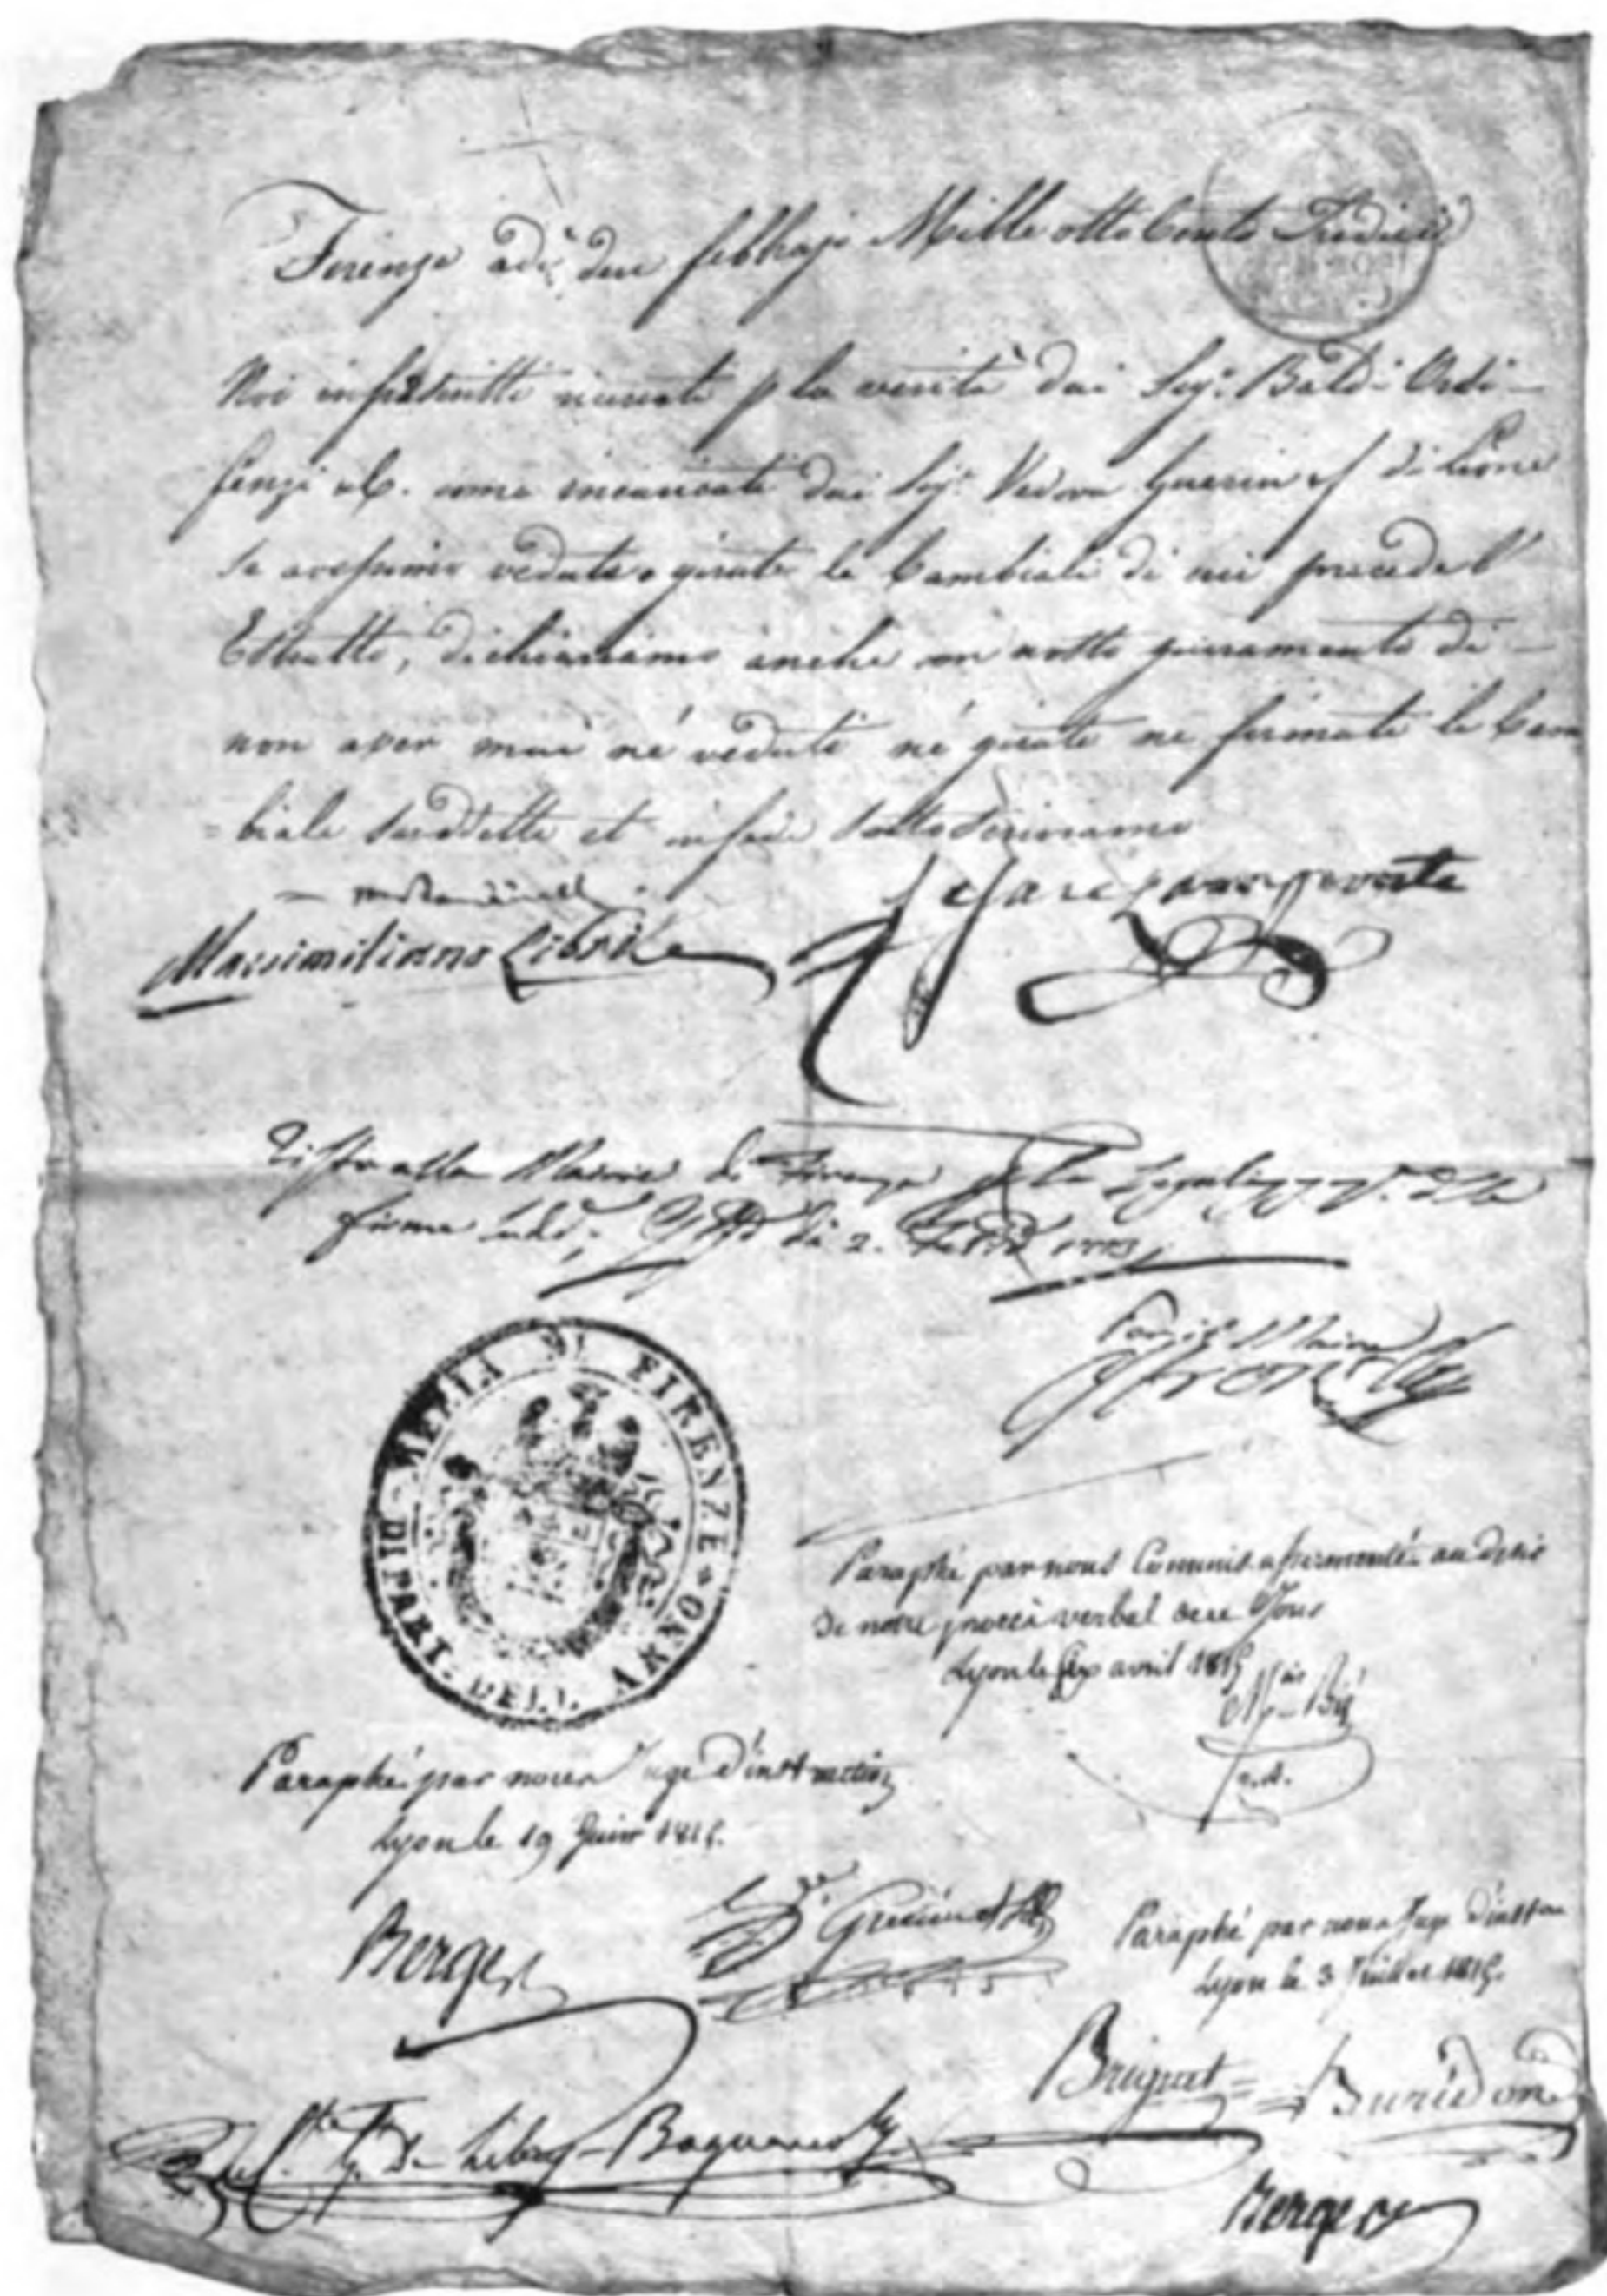 Firenze adì due febbrajo Mille otto Cento Tredici
Noi infrascritti ricercati p la verità dai Sig.ri Baldi Orsi-
fenzi e C. come incaricati dai Sig.ri Vedova Guerin e f di Lione
Se avessimo vedute o girate le Cambiali di cui precede l'
Estratto, dichiariamo anche con nostro giuramento di -
non aver mai né vedute né girate ne firmate le Cam
= biale suddette et in fede sotto scriviamo
Massimiliano
Visto alla Mairie di Firenze p la Legalizz. della
firma sudd. li 2.
Per il Maire
MERIA DI FIRENZE * DIPART. DELL. ARNO
Paraphé par nous Commis. assermenté au desir
de notre procès verbal de ce Jour
Lyon le avril 1815
Paraphé par nous Juge d'instruction
Lyon le 19 Juin 1815.
Berger
Guerin et fils
Paraphé par nous Juge d'inst.on
Lyon le 3 Juillet 1815.
Briguet = Buridon
de Libry-Bagnano
Berger